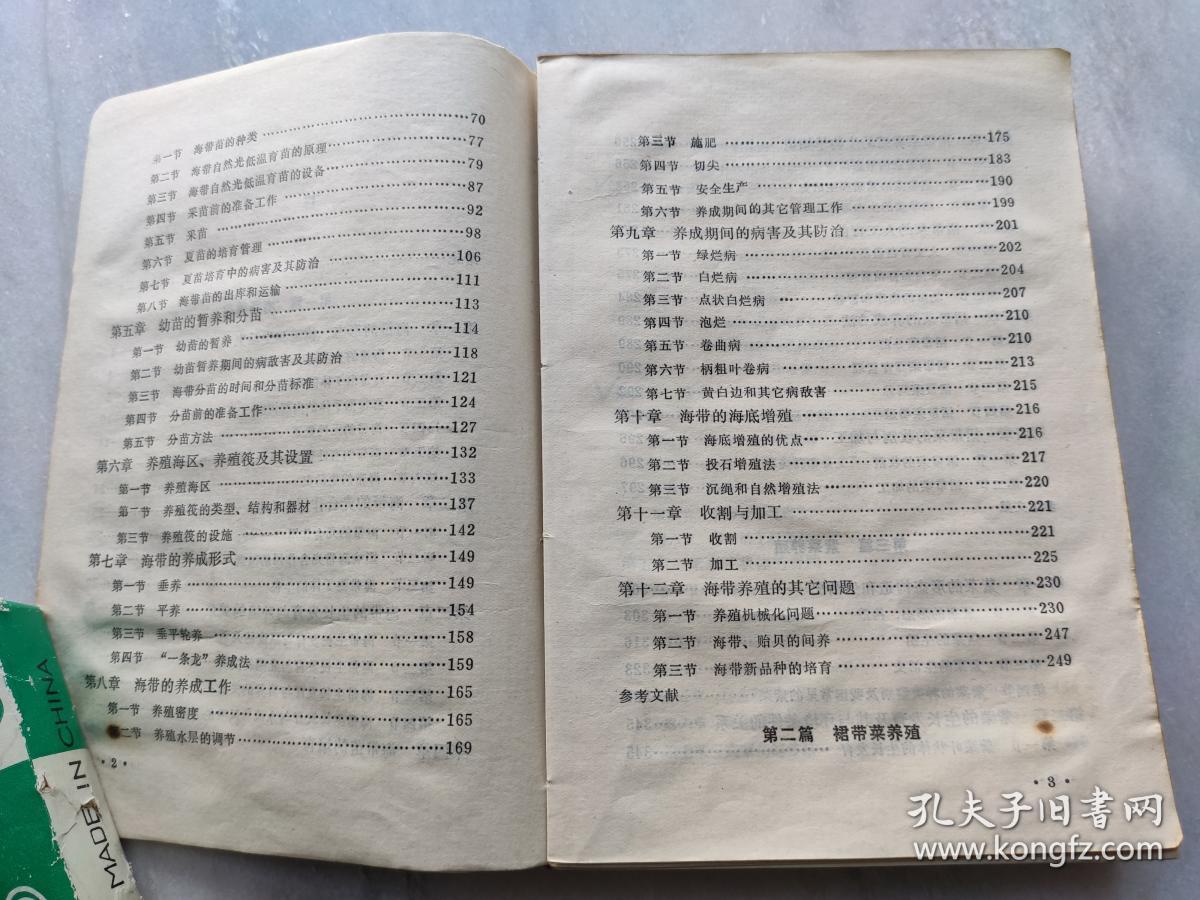 第一节 海带苗的种类……70
第二节 海带自然光低温育苗的原理……77
第三节 海带自然光低温育苗的设备……79
第四节 采苗前的准备工作……87
第五节 采苗……92
第六节 夏苗的培育管理……98
第七节 夏苗培育中的病害及其防治……106
第八节 海带苗的出库和运输……111
第五章 幼苗的暂养和分苗……113
第一节 幼苗的暂养……114
第二节 幼苗暂养期间的病敌害及其防治……118
第三节 海带分苗的时间和分苗标准……121
第四节 分苗前的准备工作……124
第五节 分苗方法……127
第六章 养殖海区、养殖筏及其设置……132
第一节 养殖海区……133
第二节 养殖筏的类型、结构和器材……137
第三节 养殖筏的设施……142
第七章 海带的养成形式……149
第一节 垂养……149
第二节 平养……154
第三节 垂平轮养……158
第四节 “一条龙”养成法……159
第八章 海带的养成工作……165
第一节 养殖密度……165
二节 养殖水层的调节……169
·2·
第三节 施肥……175
第四节 切尖……183
第五节 安全生产……190
第六节 养成期间的其它管理工作……199
第九章 养成期间的病害及其防治……201
第一节 绿烂病……202
第二节 白烂病……204
第三节 点状白烂病……207
第四节 泡烂……210
第五节 卷曲病……210
第六节 柄粗叶卷病……213
第七节 黄白边和其它病敌害……215
第十章 海带的海底增殖……216
第一节 海底增殖的优点……216
第二节 投石增殖法……217
第三节 沉绳和自然增殖法……220
第十一章 收割与加工……221
第一节 收割……221
第二节 加工……225
第十二章 海带养殖的其它问题……230
第一节 养殖机械化问题……230
第二节 海带、贻贝的间养……247
第三节 海带新品种的培育……249
参考文献
第二篇 裙带菜养殖
·3·
MADE IN CHINA
孔夫子旧书网
www.kongfz.com